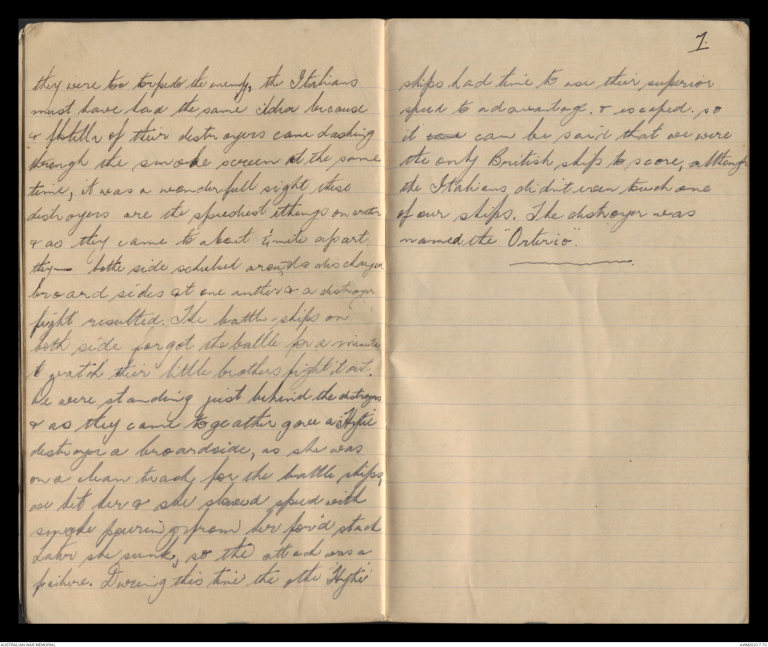 they were too torpedo the enemy, the Italians
must have had the same idea because
a flotilla of their destroyers came dashing
through the smoke screen at the same
time, it was a wonderfull sight these
destroyers are the speediest things on water
& as they came to about ½ mile apart
they — both side around & discharged
broard sides at one anther & a destroyer
fight resulted. The battle-ships on
both side forgot the battle for a minute
to watch their little brothers fight it out.
We were standing just behind the destroyers
& as they came togeather gave a
destroyer a broardside, as she was
on a clean track for the battle ships,
we hit her & she slowed speed with
smoke pouring from her for'd stack
Later she sunk, so the attack was a
failure. During this time the
7.
ships had time to use their superior
speed to advantage. & escaped. so
it can be said that we were
the only British ship to score, allthough
the Italians didnt even touch one
of our ships. The destroyer was
named the "Orterio".
AUSTRALIAN WAR MEMORIAL